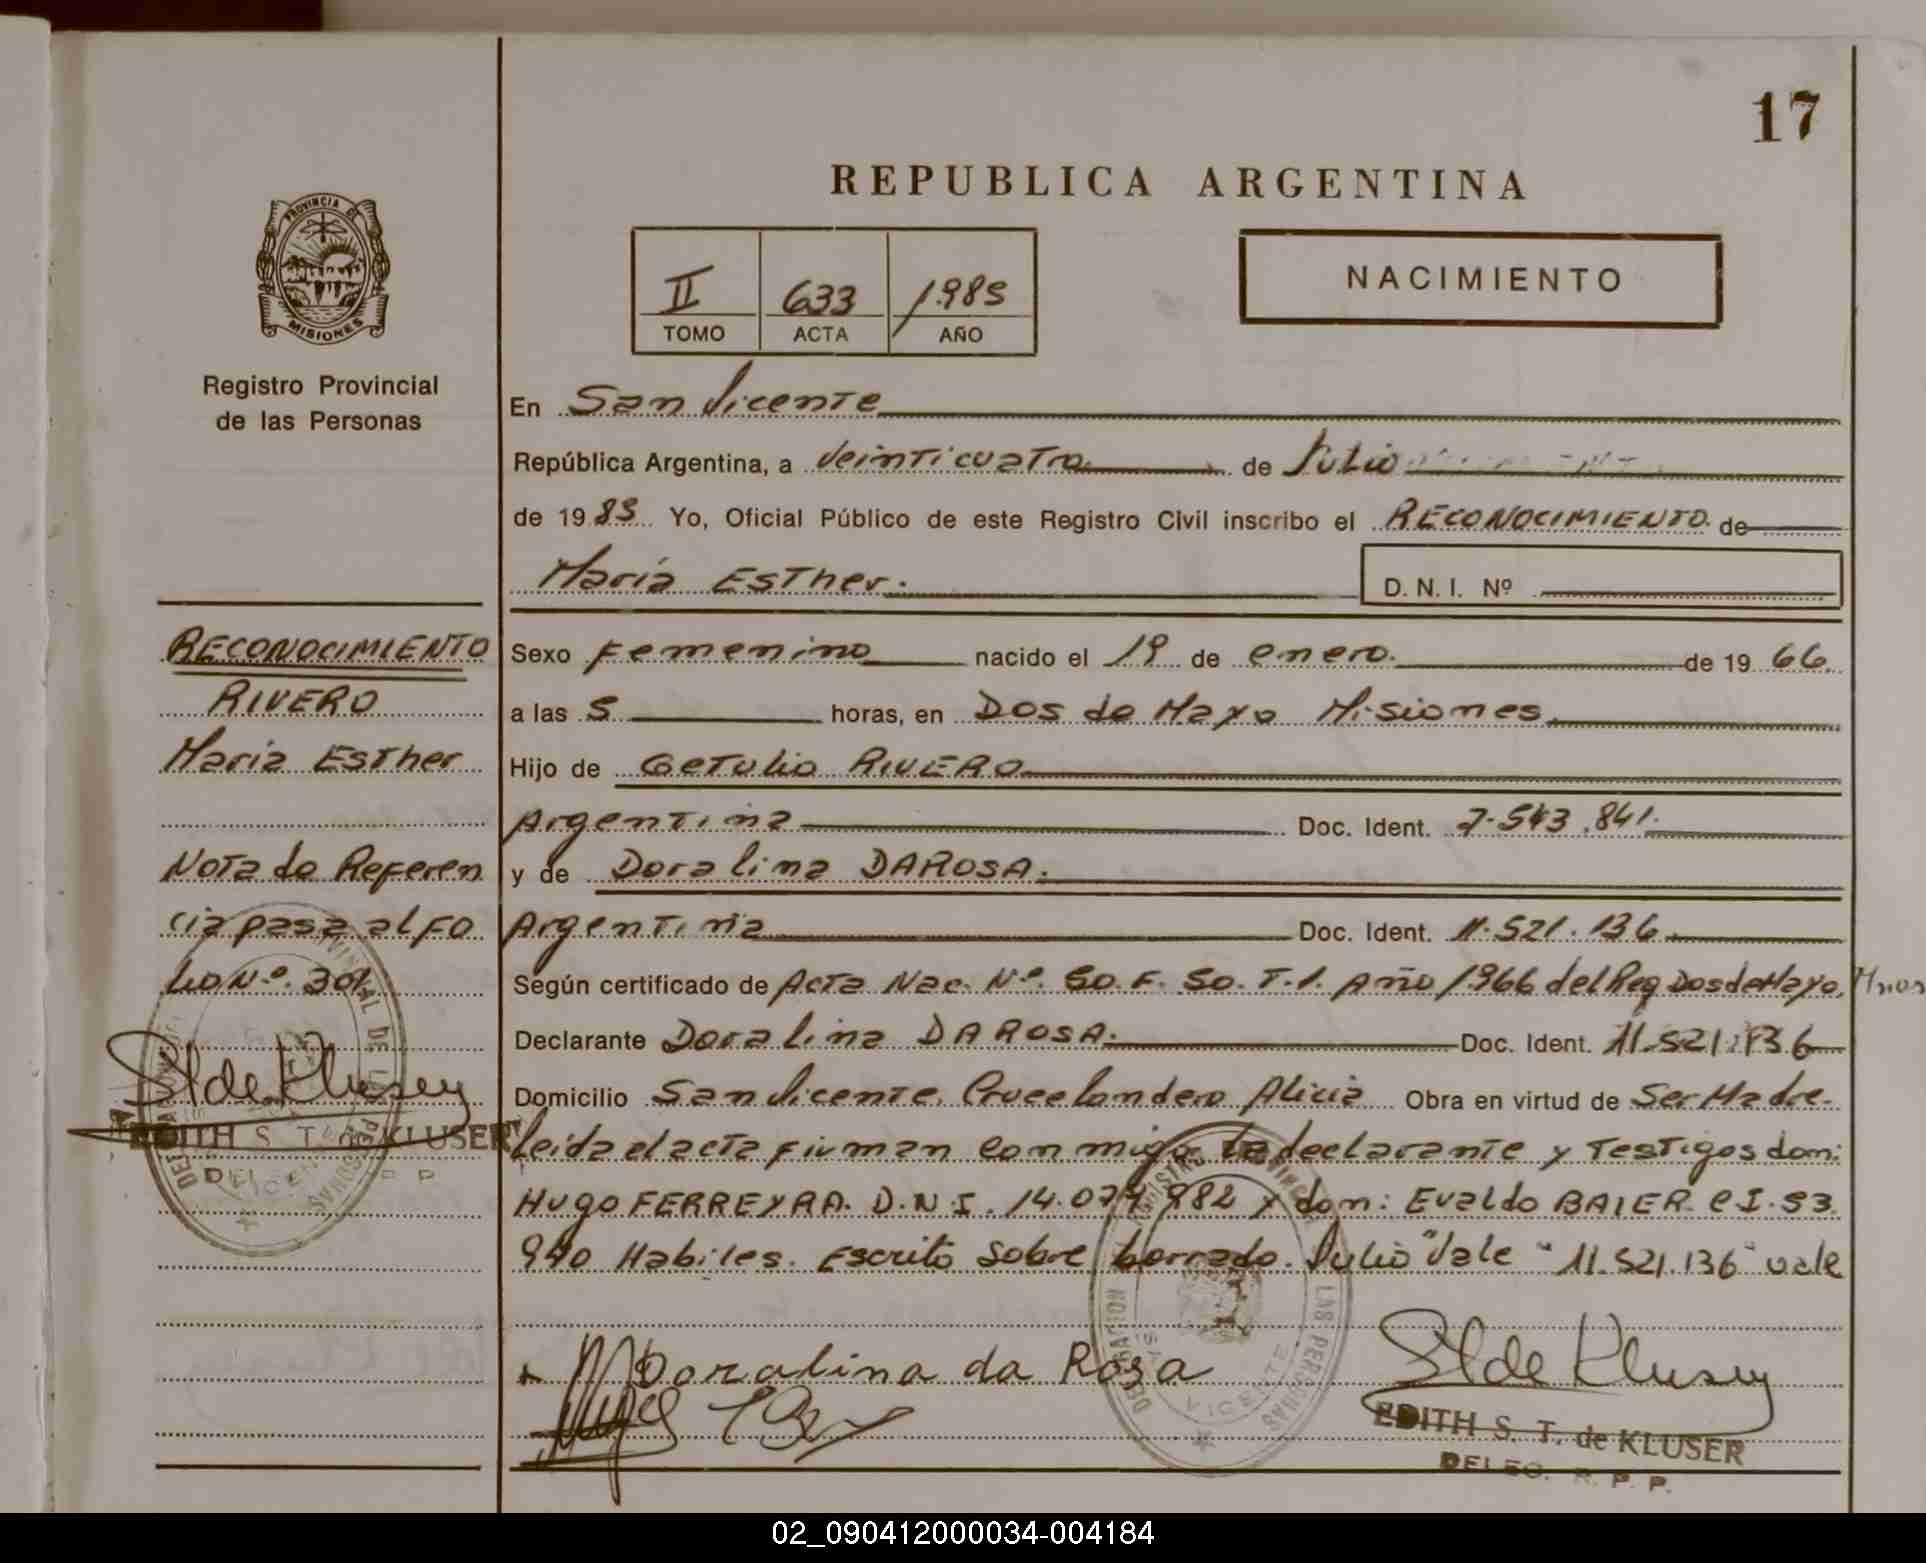 17
REPUBLICA ARGENTINA
PROVINCIA DE
MISIONES
Registro Provincial
de las Personas
II 633 1985
TOMO ACTA AÑO
NACIMIENTO
En San Vicente
República Argentina, a Veinticuatro de Julio
de 1985 Yo, Oficial Público de este Registro Civil inscribo el RECONOCIMIENTO de
María Esther. D. N. I. Nº
Sexo Femenino nacido el 19 de enero. de 1966.
a las 5 horas, en Dos de Mayo Misiones
Hijo de Getulio RIVERO
Argentina Doc. Ident. 7.543.841.
y de Doralina DAROSA.
Argentina Doc. Ident. 11.521.136
Según certificado de Acta Nac. Nº. 50. F. 50. T. 1. Año 1966 del Reg Dos de Mayo, Mnes
Declarante Doralina DAROSA. Doc. Ident. 11.521.136
Domicilio San Vicente, Alicia Obra en virtud de Ser Madre.
Leida el acta firman conmigo la declarante y testigos don:
Hugo FERREYRA. D.N.I. 14.079.982 y don: Evaldo BAIER CI. 53.
940 Habiles. Escrito sobre borrado. Julio "Vale" "11.521.136" vale
Doralina da Rosa
EDITH S. T. de KLUSER
DELEG. R. P. P.
RECONOCIMIENTO
RIVERO
María Esther
Nota de Referen
cia pasa al Fo
lio Nº. 301
EDITH S. T. de KLUSER
02_090412000034-004184